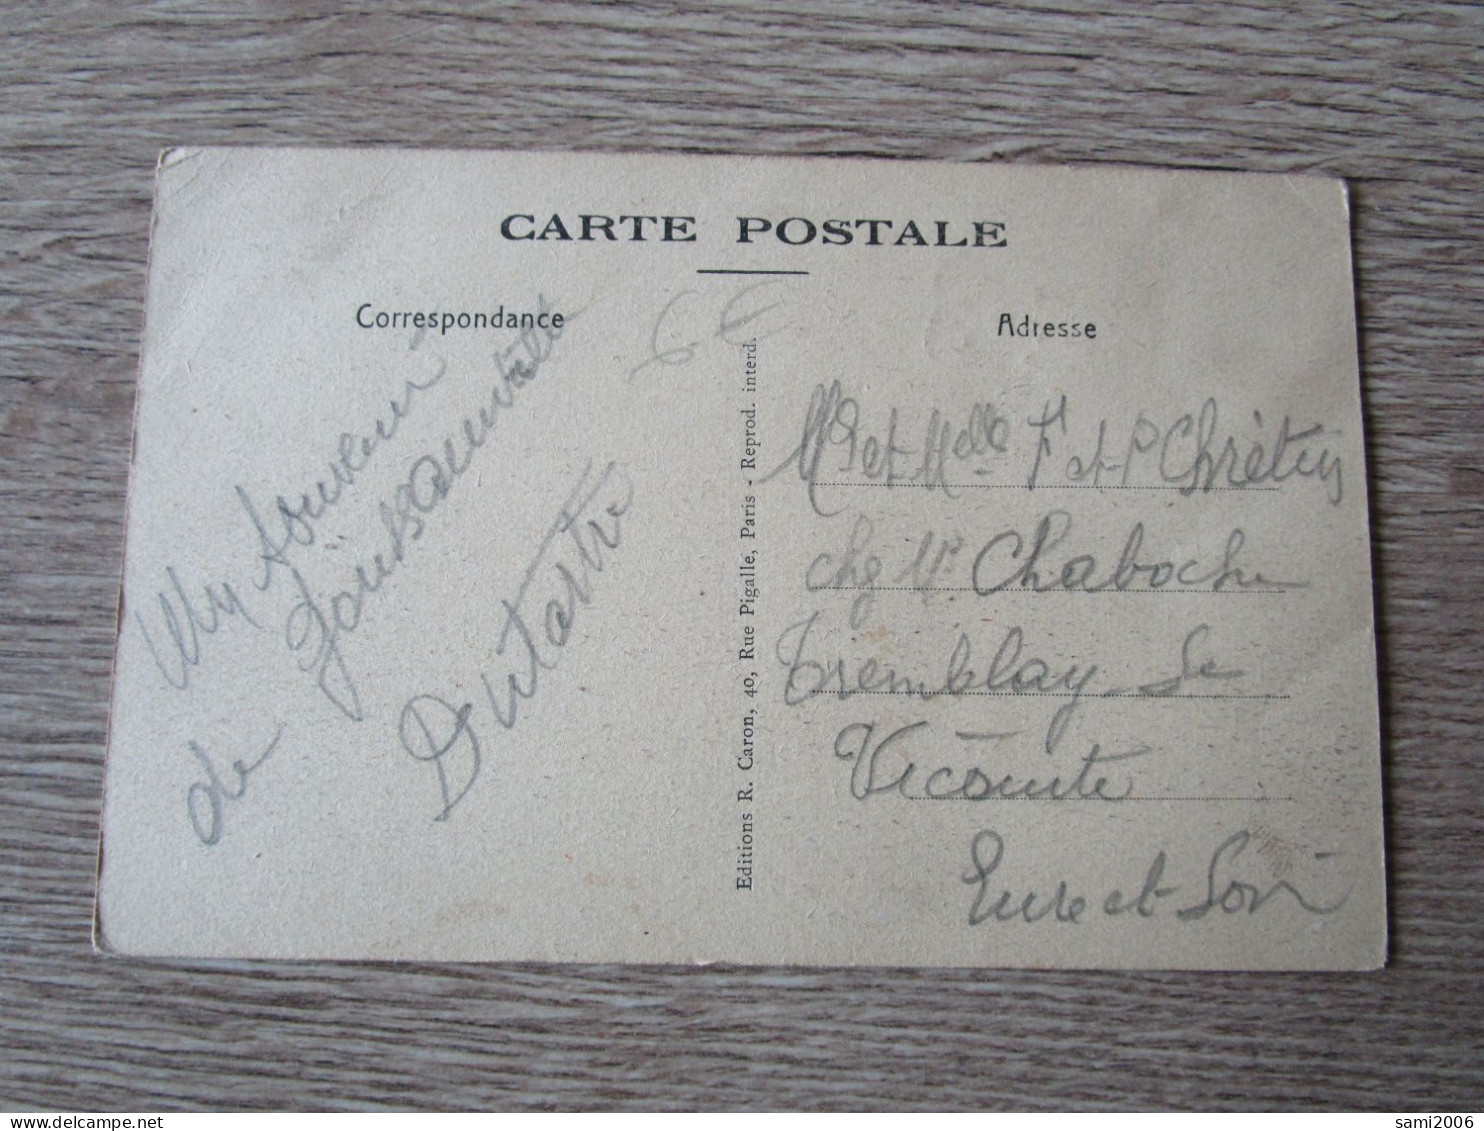 CARTE POSTALE
Correspondance
Un souvenir
de Goussainville
Dutartre
Editions R. Caron, 40, Rue Pigalle, Paris - Reprod. interd.
Adresse
et Melle F et P Chrétien
chez Mr Chaboche
Tremblay-Le
Vicomte
Eure et Loir
delcampe.net
sami2006